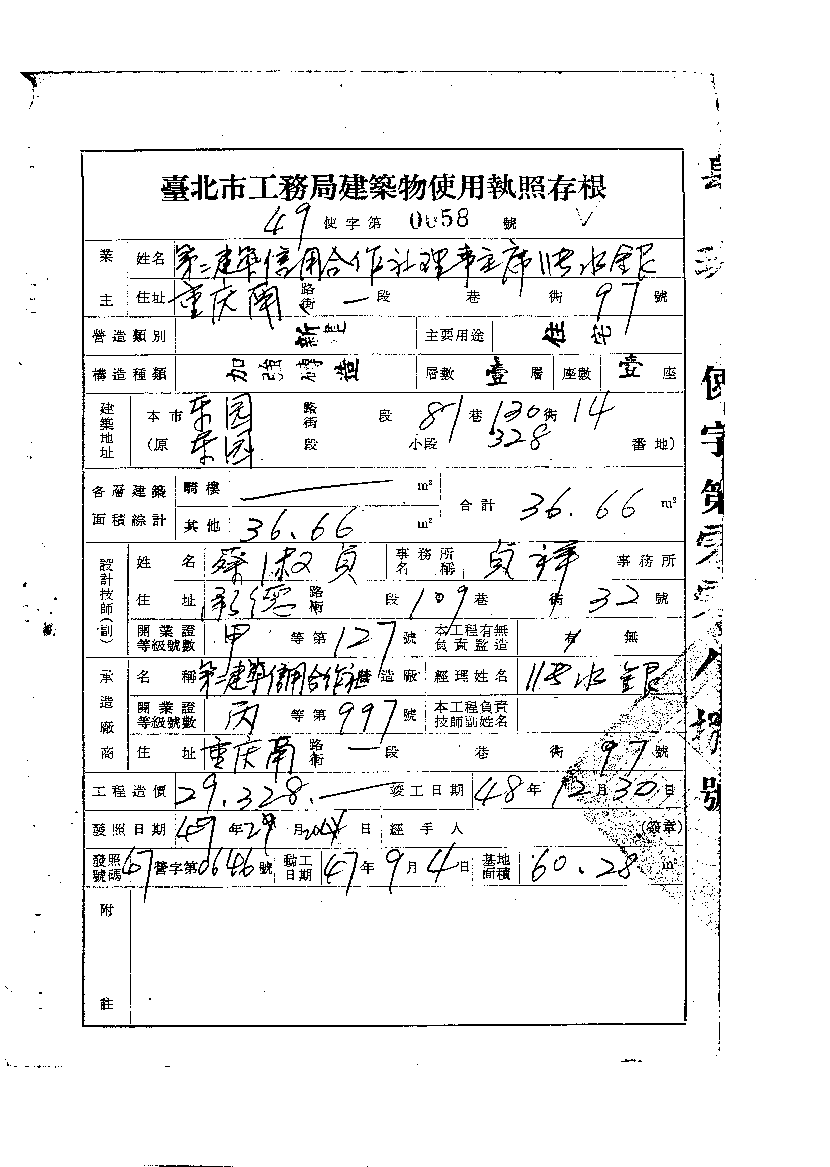 臺北市工務局建築物使用執照存根
49 使字第 0058 號
業主 姓名 第二建築信用合作社理事主席 洪水銀
住址 重庆南 路街 一段 巷 衖 97 號
營造類別 新建 主要用途 住宅
構造種類 加強磚造 層數 壹 層 座數 壹 座
建築地址 本市 东园 路街 段 81 巷 130 衖 14
(原 东园 段 小段 328 番地)
各層建築面積綜計 騎樓 m² 合計 36.66 m²
其他 36.66 m²
設計技師(副) 姓名 淑貞 事務所名稱 貞祥 事務所
住址 承德 路衖 段 109 巷 衖 32 號
開業證等級號數 甲 等第 127 號 本工程有無負責監造 有 無
承造廠商 名稱 第二建築信用合作社 營造廠 經理姓名 洪水銀
開業證等級號數 丙 等第 997 號 本工程負責技師副姓名
住址 重庆南 路衖 一段 巷 衖 97 號
工程造價 29,328.— 竣工日期 48 年 12 月 30 日
發照日期 49 年 月 日 經手人 (簽章)
發照號碼 47 營字第 0646 號 動工日期 47 年 9 月 4 日 基地面積 60.28 m²
附註
使字第零零 捌號